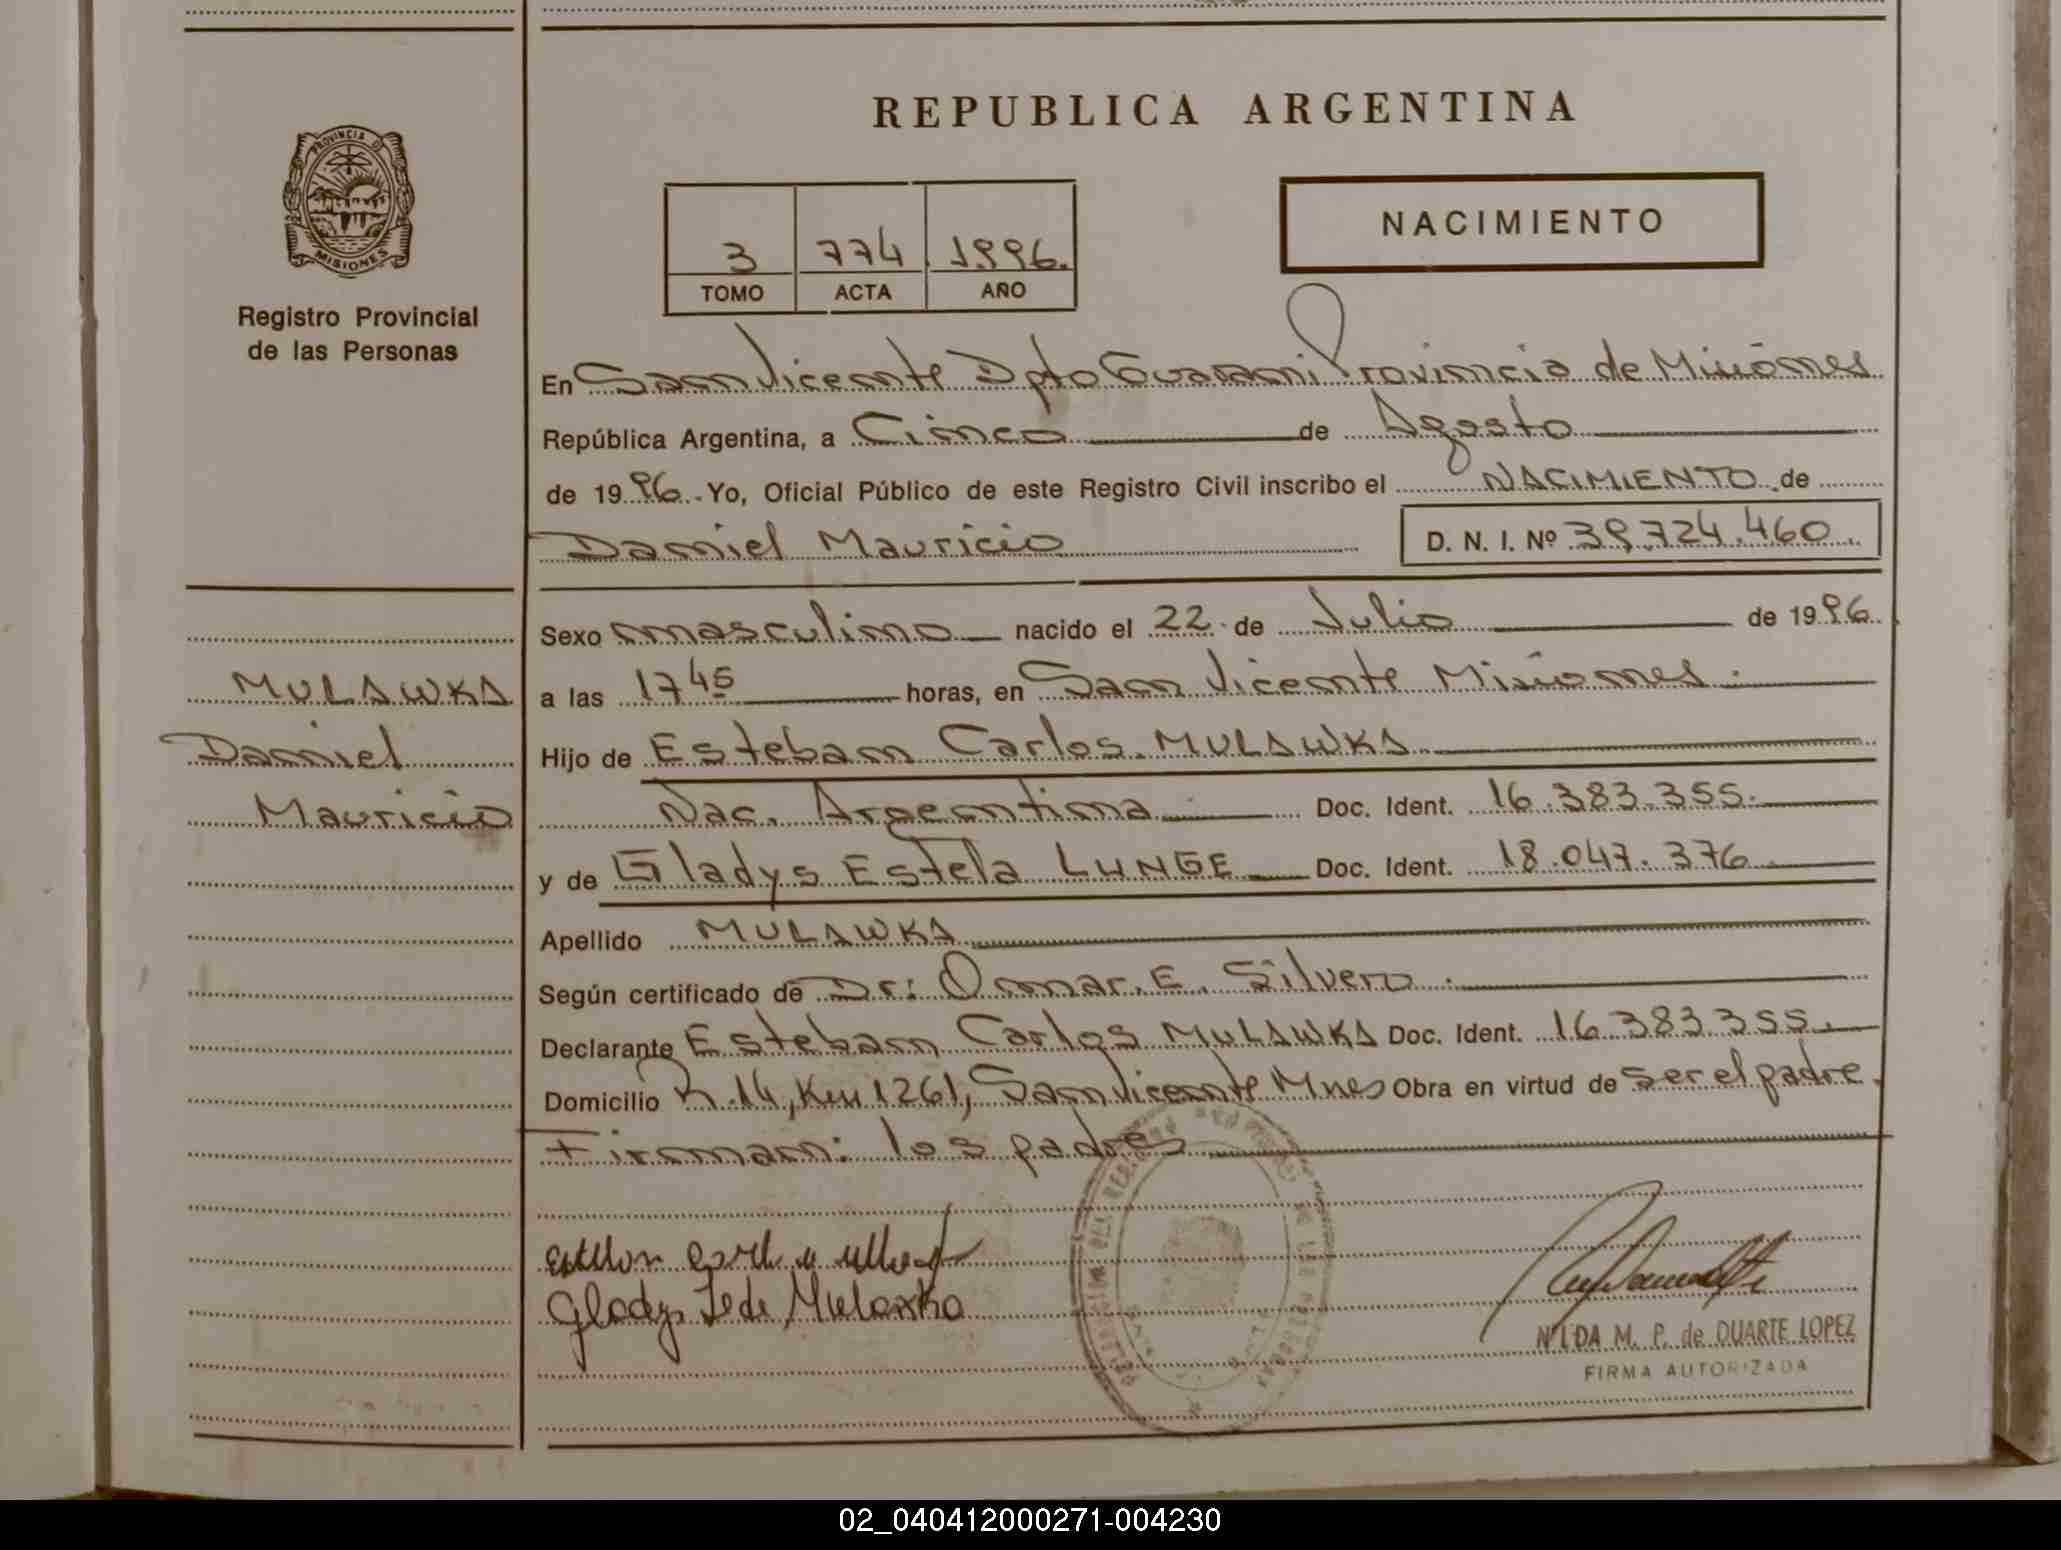 REPUBLICA ARGENTINA
PROVINCIA DE
MISIONES
Registro Provincial
de las Personas
3 774 1996.
TOMO ACTA AÑO
NACIMIENTO
En San Vicente Dpto Guarani Provincia de Misiones
República Argentina, a Cinco de Agosto
de 1996. Yo, Oficial Público de este Registro Civil inscribo el NACIMIENTO de
Daniel Mauricio D. N. I. Nº 39.724.460.
MULAWKA
Daniel
Mauricio
Sexo masculino nacido el 22 de Julio de 1996.
a las 17 45 horas, en San Vicente Misiones.
Hijo de Esteban Carlos MULAWKA
Nac. Argentina Doc. Ident. 16.383.355.
y de Gladys Estela LUNGE Doc. Ident. 18.047.376
Apellido MULAWKA
Según certificado de Dr: Omar. E. Silvero.
Declarante Esteban Carlos MULAWKA Doc. Ident. 16.383.355.
Domicilio R.14, Km 1261, San Vicente Mnes Obra en virtud de ser el padre.
Firman: los padres
Gladys
NILDA M. P. de DUARTE LOPEZ
FIRMA AUTORIZADA
02_040412000271-004230